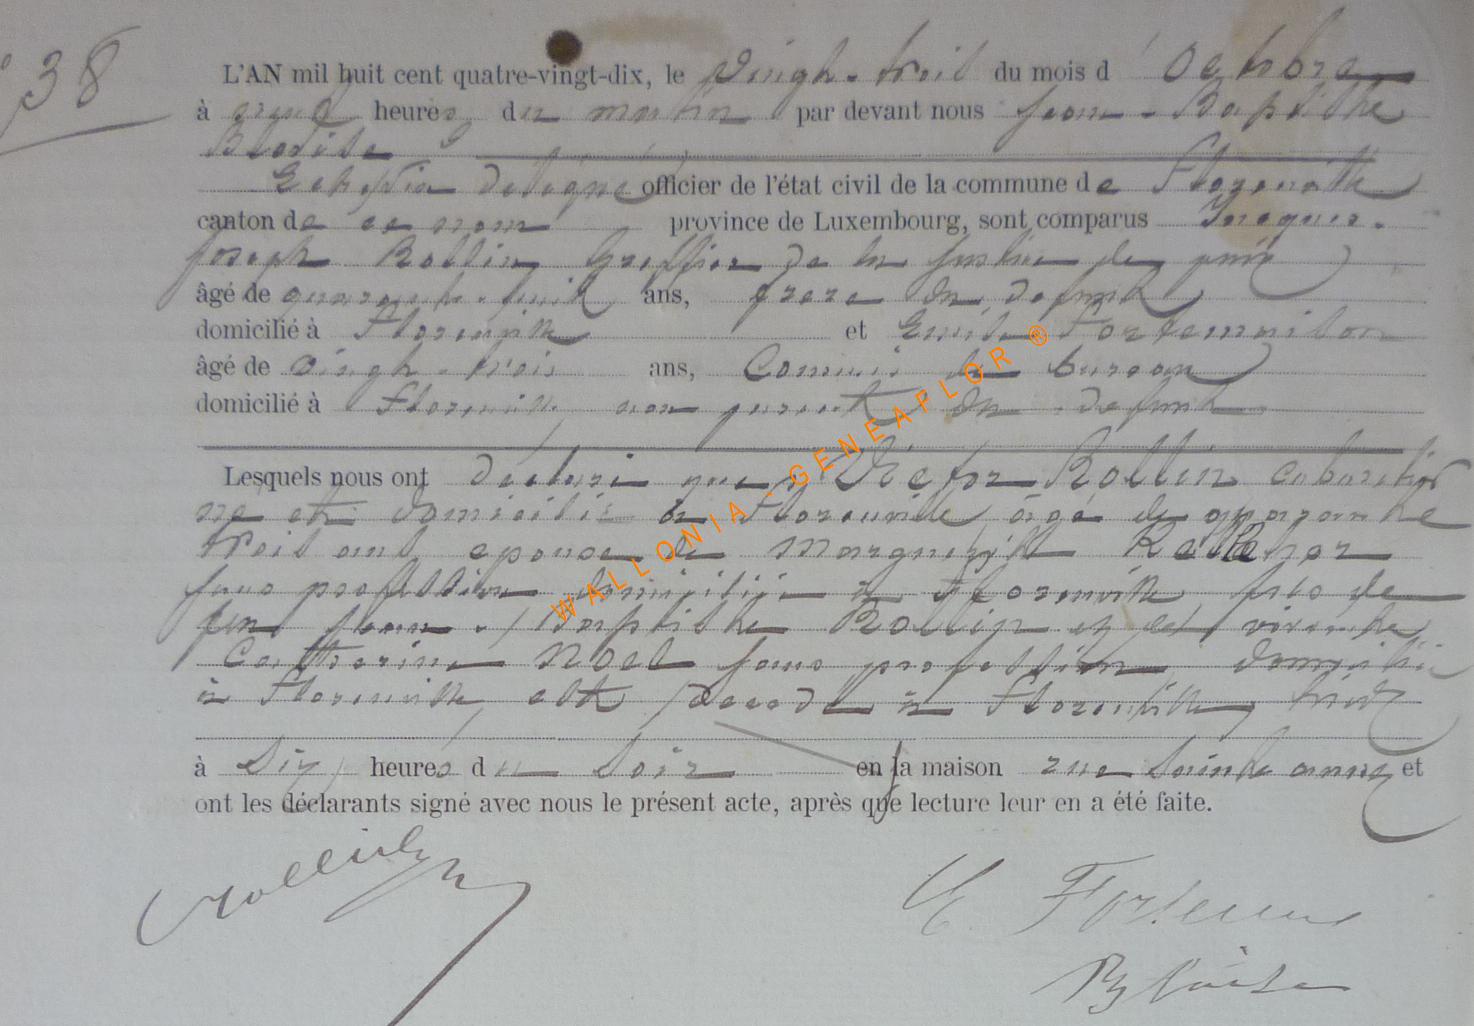 38
L'AN mil huit cent quatre-vingt-dix, le vingt-trois du mois d'Octobre
à neuf heures du matin par devant nous Jean-Baptiste
Blaise
Echevin délégué officier de l'état civil de la commune de Florenville
canton de ce nom province de Luxembourg, sont comparus Jacques-
Joseph Rollin Greffier de la justice de paix
âgé de quarante-huit ans, frère du défunt
domicilié à Florenville et Emile
âgé de vingt-trois ans, Commis de bureau
domicilié à Florenville, non parent du défunt
Lesquels nous ont déclaré que Victor Rollin cabaretier
né et domicilié à Florenville âgé de quarante
trois ans, epoux de Marguerite
sans profession domiciliée à Florenville fils de
feu Jean-Baptiste Rollin et de vivante
Catherine Noel sans profession domiciliée
à Florenville, est décédé à Florenville, hier
à six heures du soir en la maison rue Sainte anne, et
ont les déclarants signé avec nous le présent acte, après que lecture leur en a été faite.
Rollin
E
Blaise
WALLONIA-GENEAPLOR ®